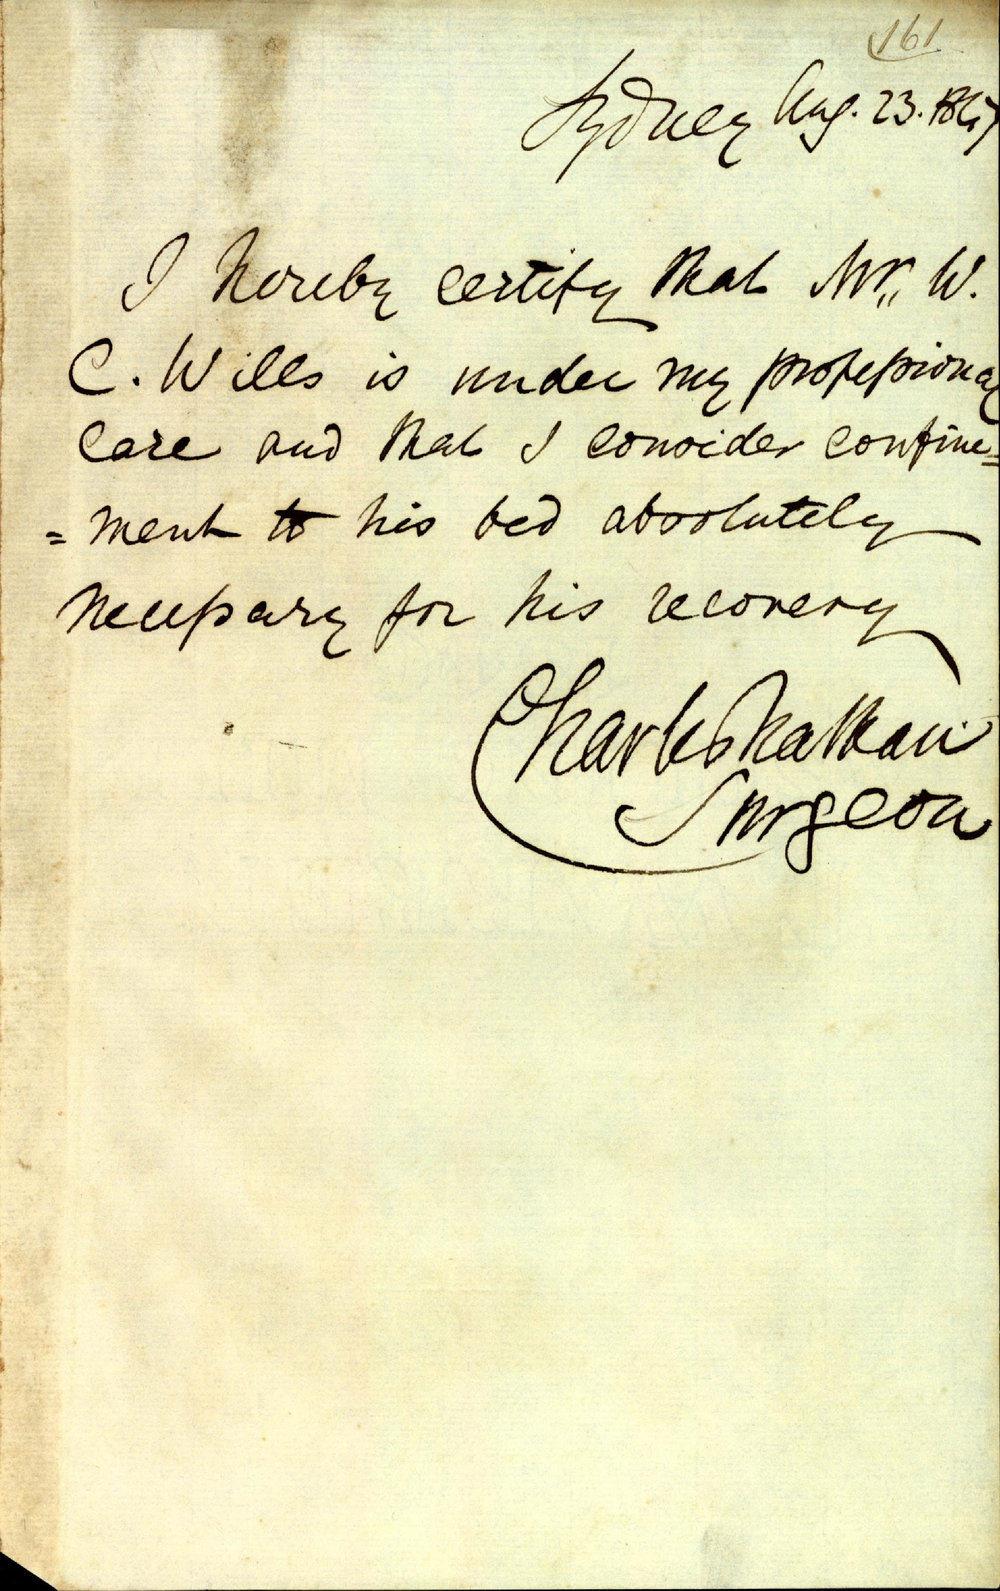 161
Sydney Aug. 23. 1867
I hereby certify that Mr,, W.
C. Wills is under my professional
care and that I consider confine=
=ment to his bed absolutely
necessary for his recovery
Charles Nathan
Surgeon